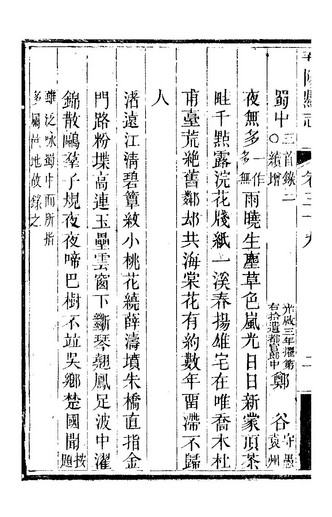 蜀中三首錄二○續增 光啟三年擢第右拾遺都官郎中鄭谷守愚袁州
夜無多一作多無雨曉生塵草色嵐光日日新蒙頂茶
畦千點露浣花牋紙一溪春揚雄宅在唯喬木杜
甫臺荒絕舊鄰却共海棠花有約數年畱滯不歸
人
渚遠江清碧簟紋小桃花繞薛濤墳朱橋直指金
門路粉堞高連玉壘雲窗下斵琴翹鳳足波中濯
錦散鷗羣子規夜夜啼巴樹不竝吳鄉楚國聞按題
雖泛咏蜀中而所指
多屬此地故錄之